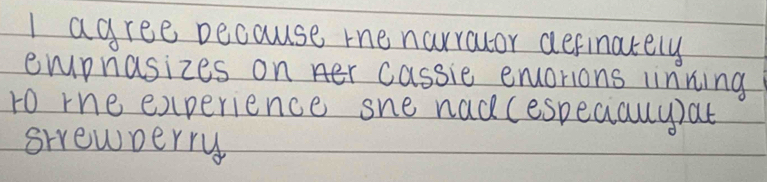 I agree because the narrator definately
emphasizes on her cassie emotions linking
to the experience she had (especially) at
strewberry